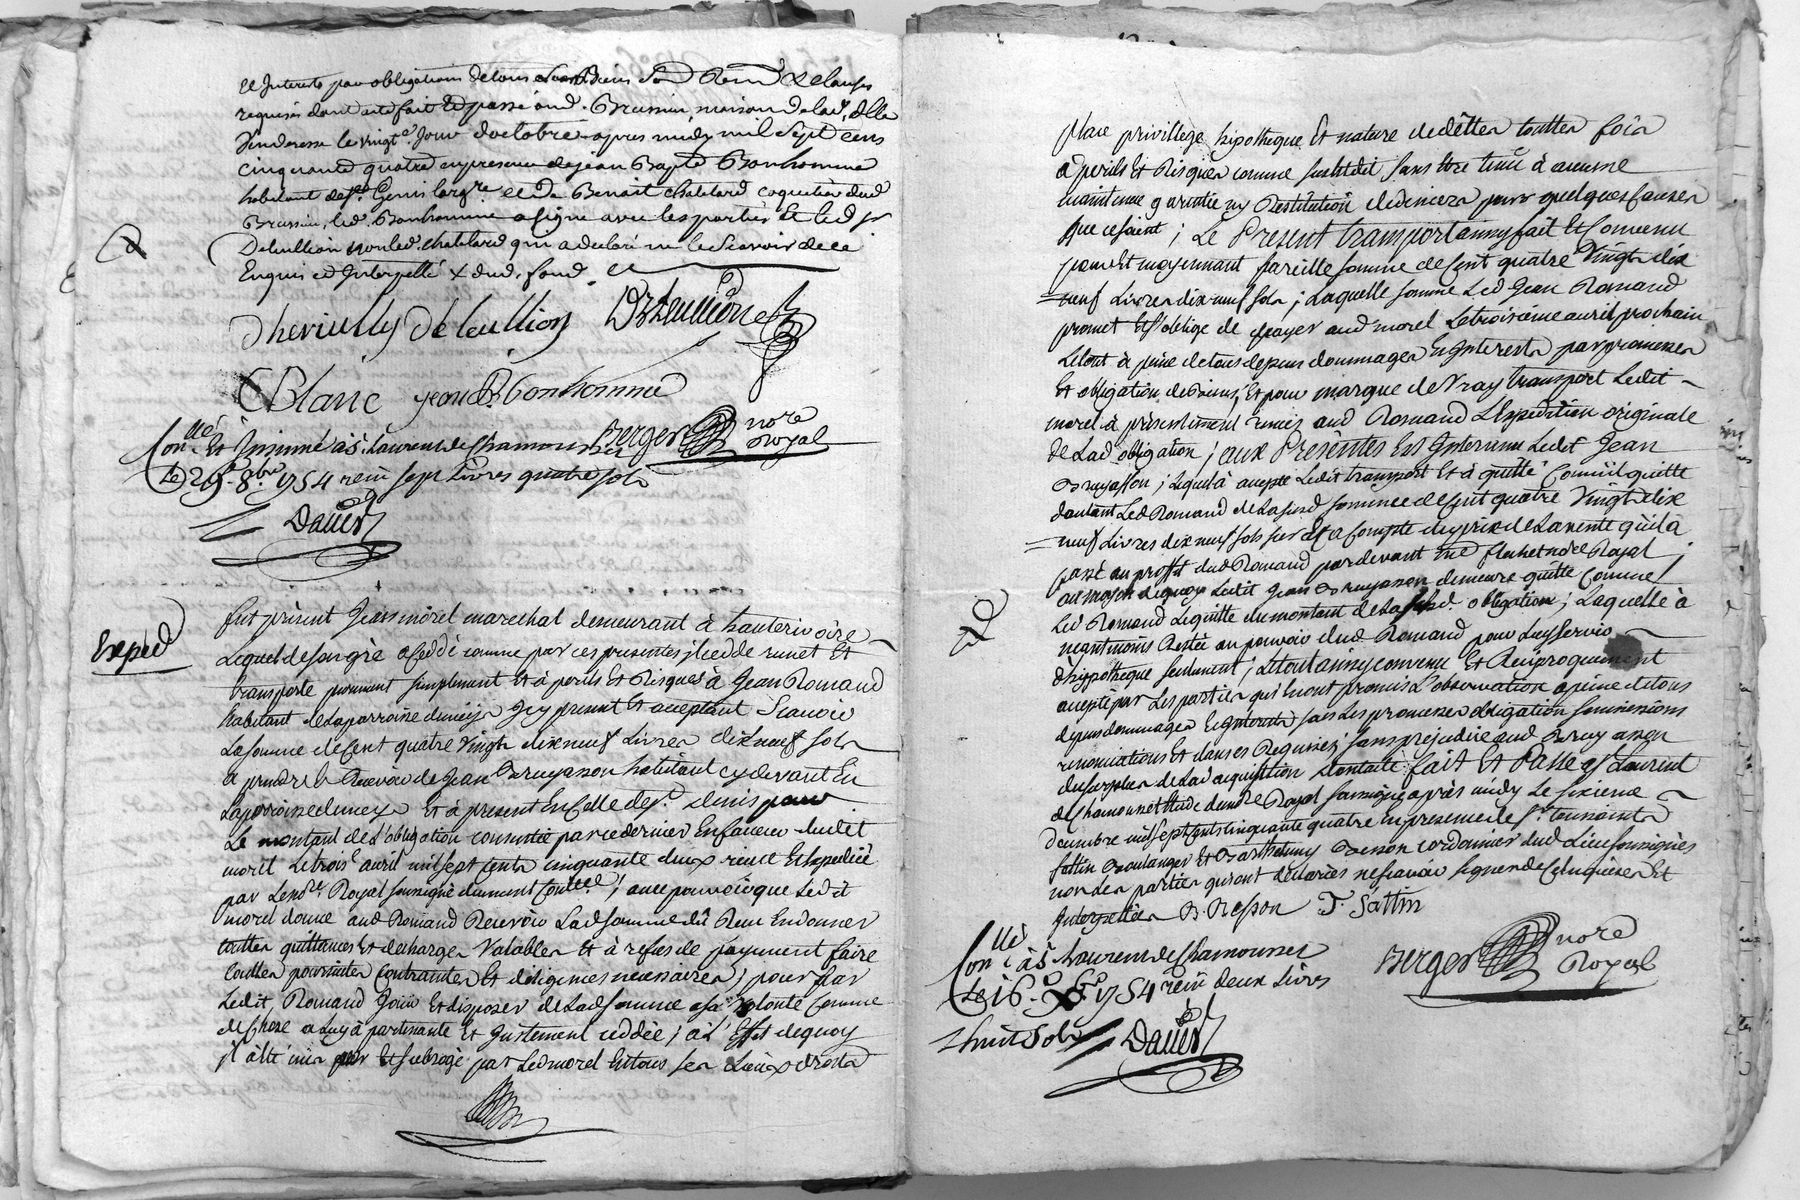 et Interests par obligations de tous Biens Soub Renon & clauses
requises dont acte fait et passé aud. Brussieu maison de lad. dlle
Venderesse le vingt.e Jour doctobre apres midy mil Sept cens
cinquante quatre en presence de jean Bapte Bonhomme
habitant de st. Genis largre et de Benoit chatelard coquetier dud
Brussieu, led. Bonhomme a signe avec les parties et led sr
Deleullion non led. chatelard qui a declaré ne le Scavoir de ce
Enquis et Interpellé x dud. fond.
Dheriully Deleullion Deleullion
Blanc jean B. bonhomme
Conllé Et Insinué à st Laurent de Chamousset Berger nore Royal
Le 29e 8bre 1754 reçu sept Livres quatre sols
Daver
Exped
fut présent Jean morel marechal demeurant à hauterivoire
Lequel de son gré a cedé comme par ces presentes il cedde remet Et
transporte purement simplement Et à perils Et Risques à Jean Romand
habitant de la parroisse de meys Icy present Et acceptant Scavoir
La somme de Cent quatre Vingts dix neuf Livres dix neuf sols
a prendre & Recevoir de Jean Bruyasson habitant cy devant En
La parroisse de meys et à present En Celle de St. denis pour
Le montant de L'obligation consentie par ce dernier En faveur dudit
morel Le trois.e avril mil sept cents cinquante deux reçue Et Expediée
par Le nore Royal soussigné dument Conllée; avec pouvoir que Ledit
morel donne aud Romand Recevoir Lad somme du Reçu En donner
touttes quittances Et decharges Valables Et à refus de payement faire
touttes poursuites Contraintes Et diligences necessaires; pour par
Ledit Romand Jouir Et disposer de Lad somme a sa Volonté Comme
de Chose a Luy à partenante Et Justement ceddée; à L'Effet de quoy
il à Eté mis Et subrogé par Led morel En tous ses Lieux droits
place privillege hipotheque Et nature de dêttes touttes fois
à perils Et Risques comme susdit Sans être tenu à aucune
maintenue garentie ny Restitution de deniers pour quelques Causes
que ce soient; Le Present transport ainsy fait Et Convenu
pour Et moyennant pareille somme de Cent quatre Vingts dix
neuf Livres dix neuf sols; Laquelle somme Led Jean Romand
promet Et s'oblige de payer aud morel Le troisième avril prochain
Le tout à peine de tous depens dommages Interests par promesses
Et obligation de Biens; Et pour marque de Vray transport Ledit
morel à présentement remis aud Romand L'Expedition originale
de Lad obligation; aux Presentes Est Intervenu Ledit Jean
Bruyasson; Lequel à accepté Ledit transport Et à quitté Comme il quitte
dautant Led Romand de La susd somme de Cent quatre Vingt dix
neuf Livres dix neuf sols sur Et a Compte du prix de La vente qu'il a
passé au proffit dud Romand pardevant me flechet nore Royal;
au moyen de quoy Ledit Jean Bruyasson demeure quitte Comme
Led Romand Le quitte du montant de La susd. obligation; Laquelle à
neantmoins Restée au pouvoir dud Romand pour Luy servir
d'hypotheque seulement; Le tout ainsy convenu Et Reciproquement
accepté par Les parties qui En ont promis L'observation a peine de tous
depens dommages Interests par Les promesses obligation soumissions
renonciations Et clauses Requises; sans prejudice aud Bruyasson
du surplus de Lad acquisition dont acte; fait Et Passé a St Laurent
de Chamousset Etude du nore Royal soussigné après midy Le sixieme
decembre mil sept cent cinquante quatre En presence de Sr. toussaint
sattin Boulanger Et Barthelemy Besson cordonnier dud Lieu soussignés
non Les parties qui ont declarées ne scavoir signer de Ce Enquises Et
Interpellées B. Besson T. Sattin
Conllé à st Laurent de Chamousset Berger nore Royal
Le 16e Xbre 1754 reçu deux Livres
huit Sols Daver